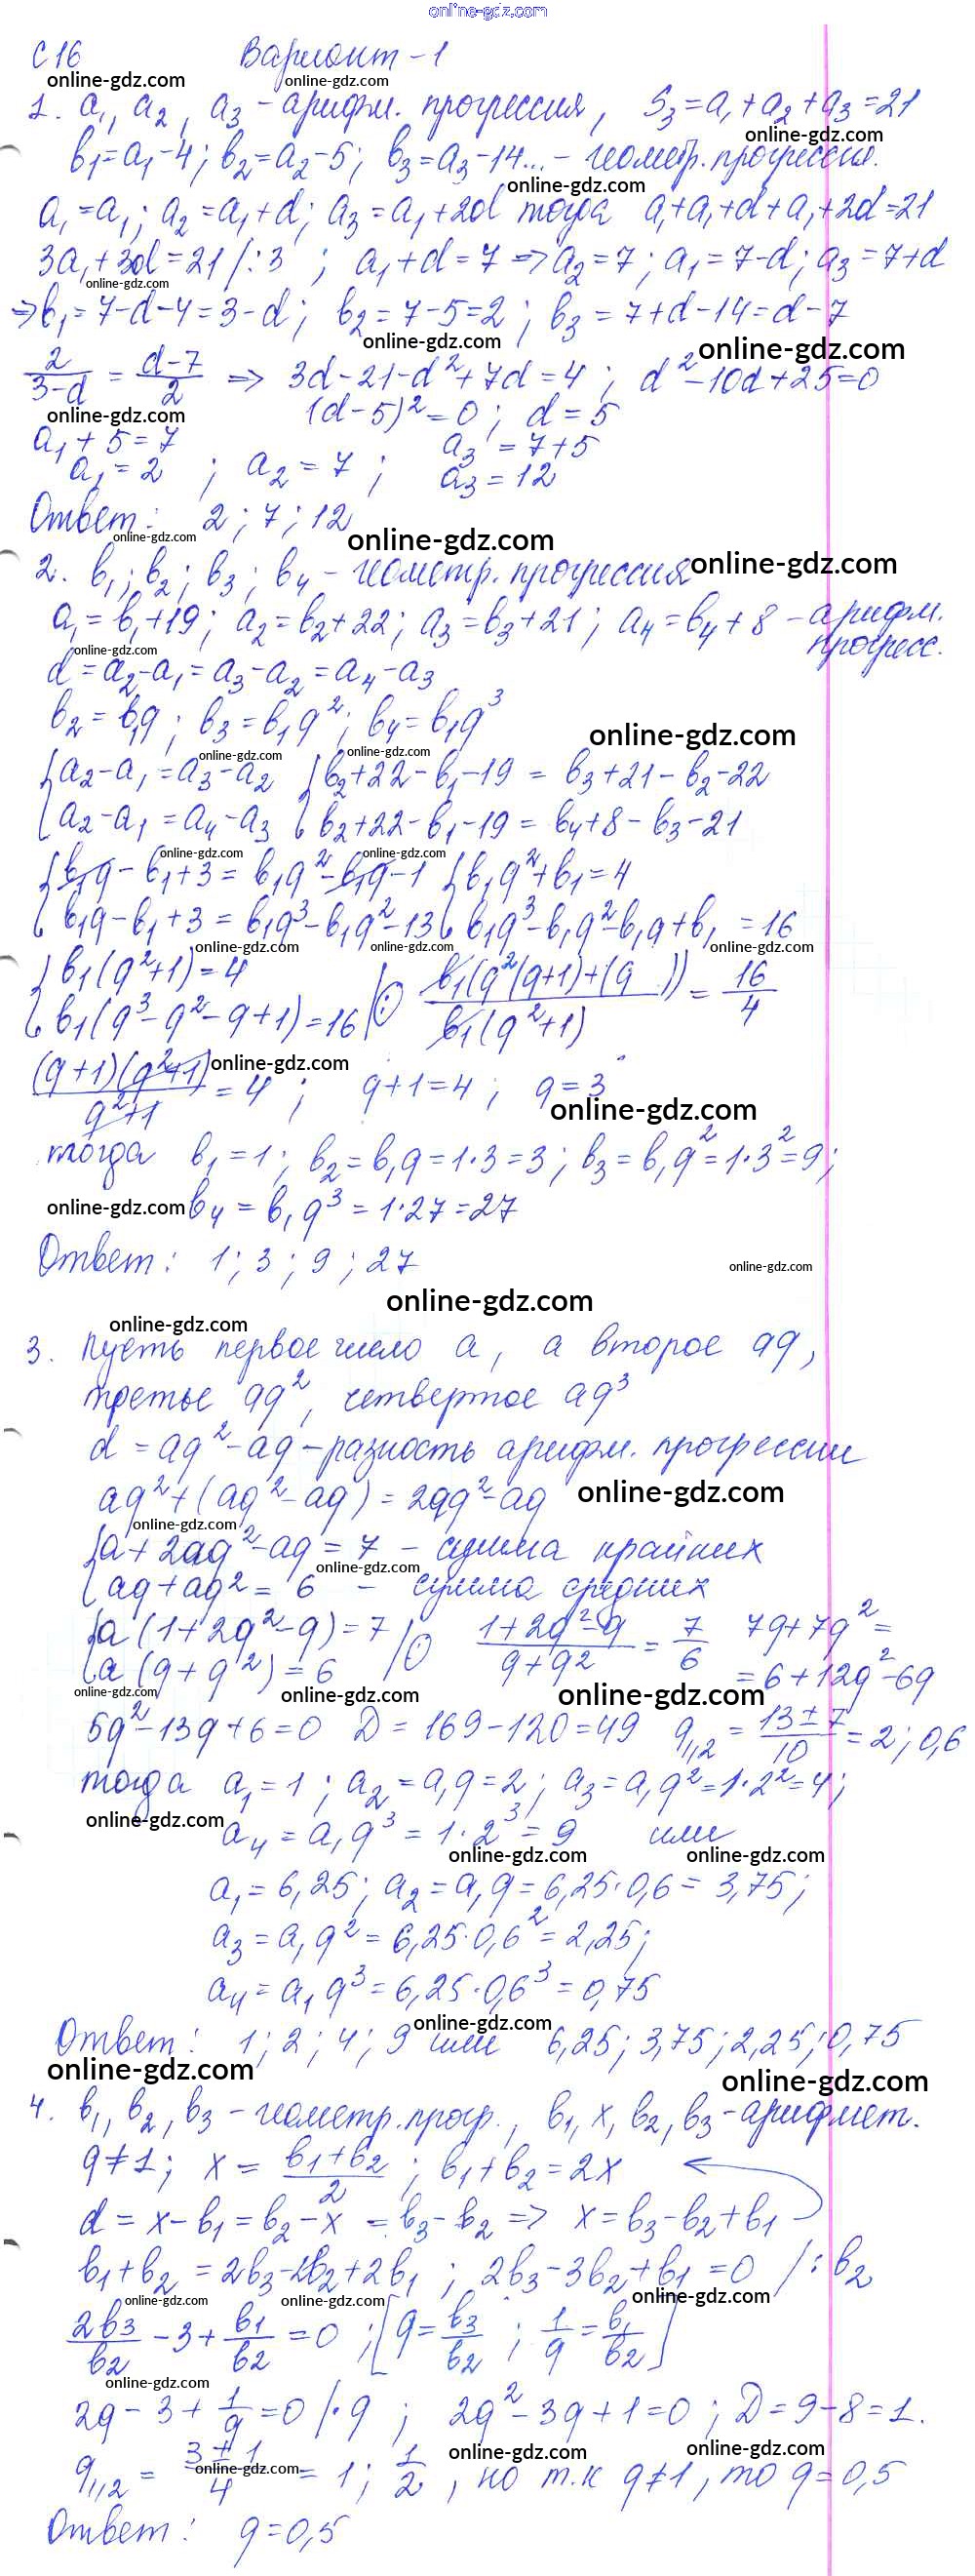 online-gdz.com
С 16 Вариант - 1
online-gdz.com online-gdz.com
1. a₁, a₂, a₃ - арифм. прогрессия, S₃ = a₁ + a₂ + a₃ = 21
online-gdz.com
b₁ = a₁ - 4; b₂ = a₂ - 5; b₃ = a₃ - 14... - геометр. прогрессия.
online-gdz.com
a₁ = a₁; a₂ = a₁ + d; a₃ = a₁ + 2d тогда a₁ + a₁ + d + a₁ + 2d = 21
3a₁ + 3d = 21 /:3 ; a₁ + d = 7 => a₂ = 7; a₁ = 7 - d; a₃ = 7 + d
online-gdz.com
=> b₁ = 7 - d - 4 = 3 - d; b₂ = 7 - 5 = 2; b₃ = 7 + d - 14 = d - 7
online-gdz.com online-gdz.com
2/(3-d) = (d-7)/2 => 3d - 21 - d² + 7d = 4; d² - 10d + 25 = 0
online-gdz.com (d-5)² = 0; d = 5
a₁ + 5 = 7 a₃ = 7 + 5
a₁ = 2 ; a₂ = 7 ; a₃ = 12
Ответ: 2; 7; 12
online-gdz.com online-gdz.com
2. b₁; b₂; b₃; b₄ - геометр. прогрессия online-gdz.com
a₁ = b₁ + 19; a₂ = b₂ + 22; a₃ = b₃ + 21; a₄ = b₄ + 8 - арифм.
прогресс.
online-gdz.com
d = a₂ - a₁ = a₃ - a₂ = a₄ - a₃
b₂ = b₁q; b₃ = b₁q²; b₄ = b₁q³
online-gdz.com
online-gdz.com online-gdz.com
{a₂ - a₁ = a₃ - a₂ {b₂ + 22 - b₁ - 19 = b₃ + 21 - b₂ - 22
{a₂ - a₁ = a₄ - a₃ {b₂ + 22 - b₁ - 19 = b₄ + 8 - b₃ - 21
online-gdz.com online-gdz.com
{b₁q - b₁ + 3 = b₁q² - b₁q - 1 {b₁q² + b₁ = 4
{b₁q - b₁ + 3 = b₁q³ - b₁q² - 13 {b₁q³ - b₁q² - b₁q + b₁ = 16
online-gdz.com online-gdz.com online-gdz.com
{b₁(q² + 1) = 4
{b₁(q³ - q² - q + 1) = 16 /(:) b₁(q²(q+1)+(q ))/b₁(q²+1) = 16/4
(q+1)(q²+1)/(q²+1) = 4 ; q + 1 = 4 ; q = 3
online-gdz.com
online-gdz.com
тогда b₁ = 1; b₂ = b₁q = 1·3 = 3; b₃ = b₁q² = 1·3² = 9;
online-gdz.com b₄ = b₁q³ = 1·27 = 27
Ответ: 1; 3; 9; 27
online-gdz.com
online-gdz.com
online-gdz.com
3. Пусть первое число a, а второе aq,
третье aq², четвертое aq³
d = aq² - aq - разность арифм. прогрессии
aq² + (aq² - aq) = 2aq² - aq online-gdz.com
online-gdz.com
{a + 2aq² - aq = 7 - сумма крайних
online-gdz.com
{aq + aq² = 6 - сумма средних
{a(1 + 2q² - q) = 7
{a(q + q²) = 6 /(:) (1+2q²-q)/(q+q²) = 7/6 7q + 7q² =
= 6 + 12q² - 6q
online-gdz.com online-gdz.com online-gdz.com
5q² - 13q + 6 = 0 D = 169 - 120 = 49 q₁,₂ = (13±7)/10 = 2; 0,6
тогда a₁ = 1; a₂ = a₁q = 2; a₃ = a₁q² = 1·2² = 4;
online-gdz.com
a₄ = a₁q³ = 1·2³ = 9 или
online-gdz.com online-gdz.com
a₁ = 6,25; a₂ = a₁q = 6,25·0,6 = 3,75;
a₃ = a₁q² = 6,25·0,6² = 2,25;
a₄ = a₁q³ = 6,25·0,6³ = 0,75
online-gdz.com
Ответ: 1; 2; 4; 9 или 6,25; 3,75; 2,25; 0,75
online-gdz.com online-gdz.com
4. b₁, b₂, b₃ - геометр. прогр., b₁, x, b₂, b₃ - арифмет.
q ≠ 1; x = (b₁+b₂)/2 ; b₁ + b₂ = 2x
d = x - b₁ = b₂ - x = b₃ - b₂ => x = b₃ - b₂ + b₁
b₁ + b₂ = 2b₃ - 2b₂ + 2b₁ ; 2b₃ - 3b₂ + b₁ = 0 /:b₂
online-gdz.com online-gdz.com online-gdz.com
2b₃/b₂ - 3 + b₁/b₂ = 0 ; [q = b₃/b₂ ; 1/q = b₁/b₂]
online-gdz.com
2q - 3 + 1/q = 0 /·q ; 2q² - 3q + 1 = 0 ; D = 9 - 8 = 1.
online-gdz.com online-gdz.com online-gdz.com
q₁,₂ = (3±1)/4 = 1; 1/2 , но т.к q ≠ 1, то q = 0,5
Ответ: q = 0,5